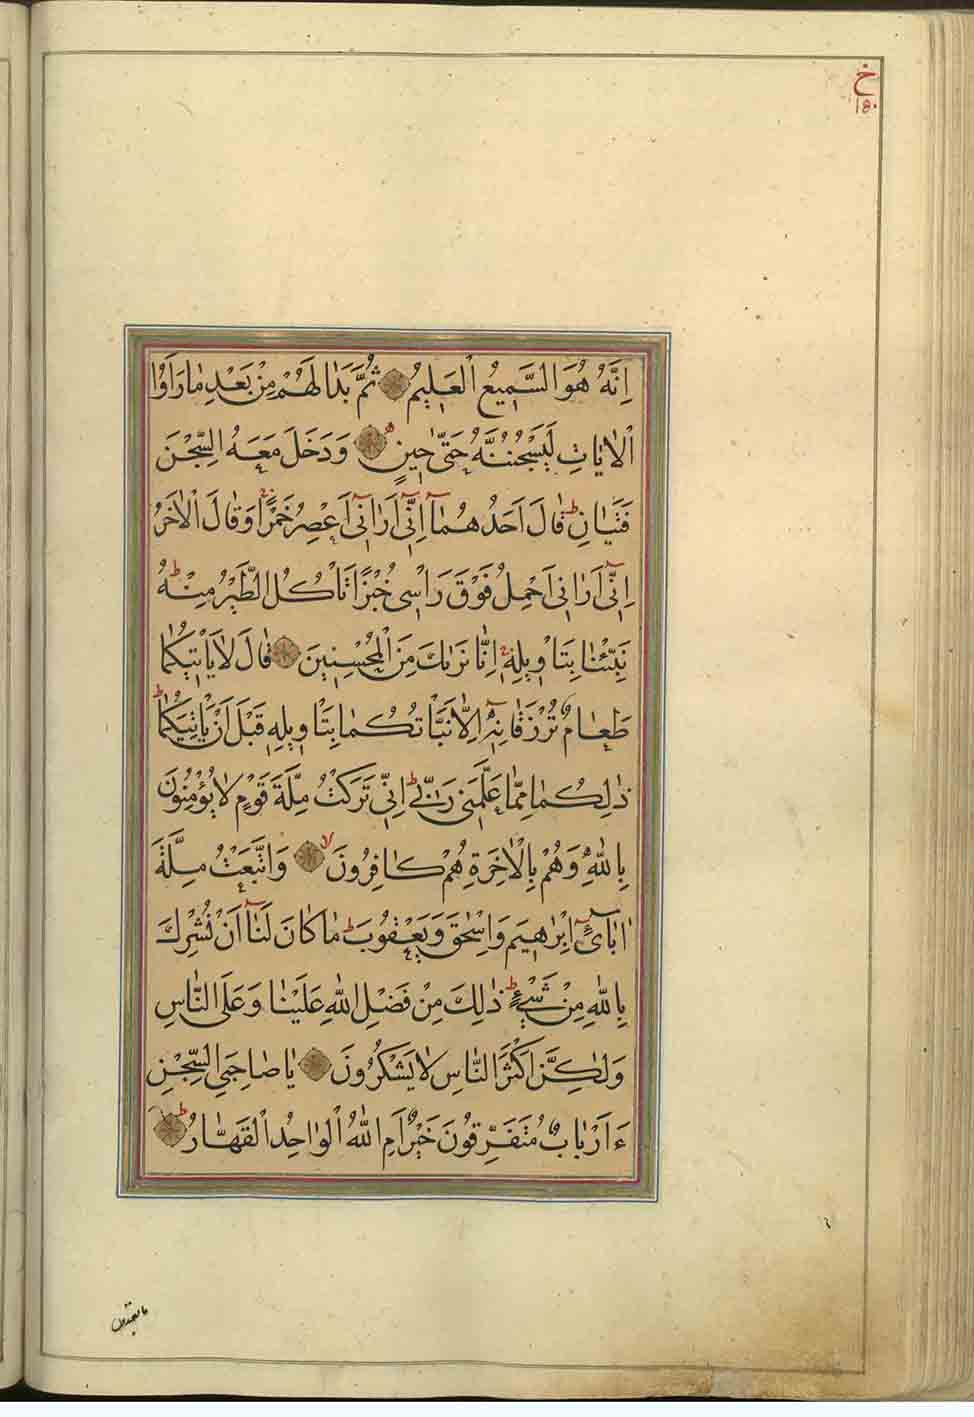 خ
١٥٠
اِنَّهُ هُوَ السَّمِيعُ الْعَلِيمُ ثُمَّ بَدَا لَهُمْ مِنْ بَعْدِ مَا رَاَوُا
الْاٰيَاتِ لَيَسْجُنُنَّهُ حَتّٰى حِينٍ وَدَخَلَ مَعَهُ السِّجْنَ
فَتَيَانِ ط قَالَ اَحَدُهُمَآ اِنِّىٓ اَرَانِىٓ اَعْصِرُ خَمْرًا وَقَالَ الْاٰخَرُ
اِنِّىٓ اَرَانِى اَحْمِلُ فَوْقَ رَاْسِى خُبْزًا تَاْكُلُ الطَّيْرُ مِنْهُ ط
نَبِّئْنَا بِتَاْوِيلِهِ اِنَّا نَرٰيكَ مِنَ الْمُحْسِنِينَ قَالَ لَا يَاْتِيكُمَا
طَعَامٌ تُرْزَقَانِهِٓ اِلَّا نَبَّاْتُكُمَا بِتَاْوِيلِهِ قَبْلَ اَنْ يَاْتِيَكُمَا ط
ذٰلِكُمَا مِمَّا عَلَّمَنِى رَبِّى ط اِنِّى تَرَكْتُ مِلَّةَ قَوْمٍ لَا يُؤْمِنُونَ
بِاللّٰهِ وَهُمْ بِالْاٰخِرَةِ هُمْ كَافِرُونَ لا وَاتَّبَعْتُ مِلَّةَ
اٰبَآئِىٓ اِبْرٰهِيمَ وَاِسْحٰقَ وَيَعْقُوبَ ط مَا كَانَ لَنَآ اَنْ نُشْرِكَ
بِاللّٰهِ مِنْ شَىْءٍ ط ذٰلِكَ مِنْ فَضْلِ اللّٰهِ عَلَيْنَا وَعَلَى النَّاسِ
وَلٰكِنَّ اَكْثَرَ النَّاسِ لَا يَشْكُرُونَ يَا صَاحِبَىِ السِّجْنِ
ءَاَرْبَابٌ مُتَفَرِّقُونَ خَيْرٌ اَمِ اللّٰهُ الْوَاحِدُ الْقَهَّارُ ط
ما تعبدون